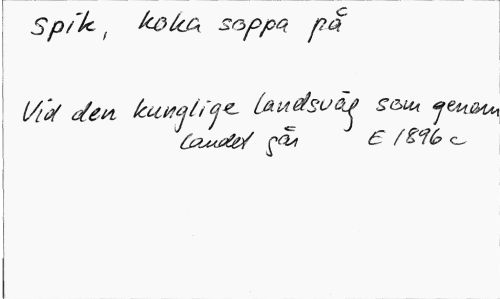 spik, koka soppa på
Vid den kunglige landsväg som genom
landet går E 1896 c